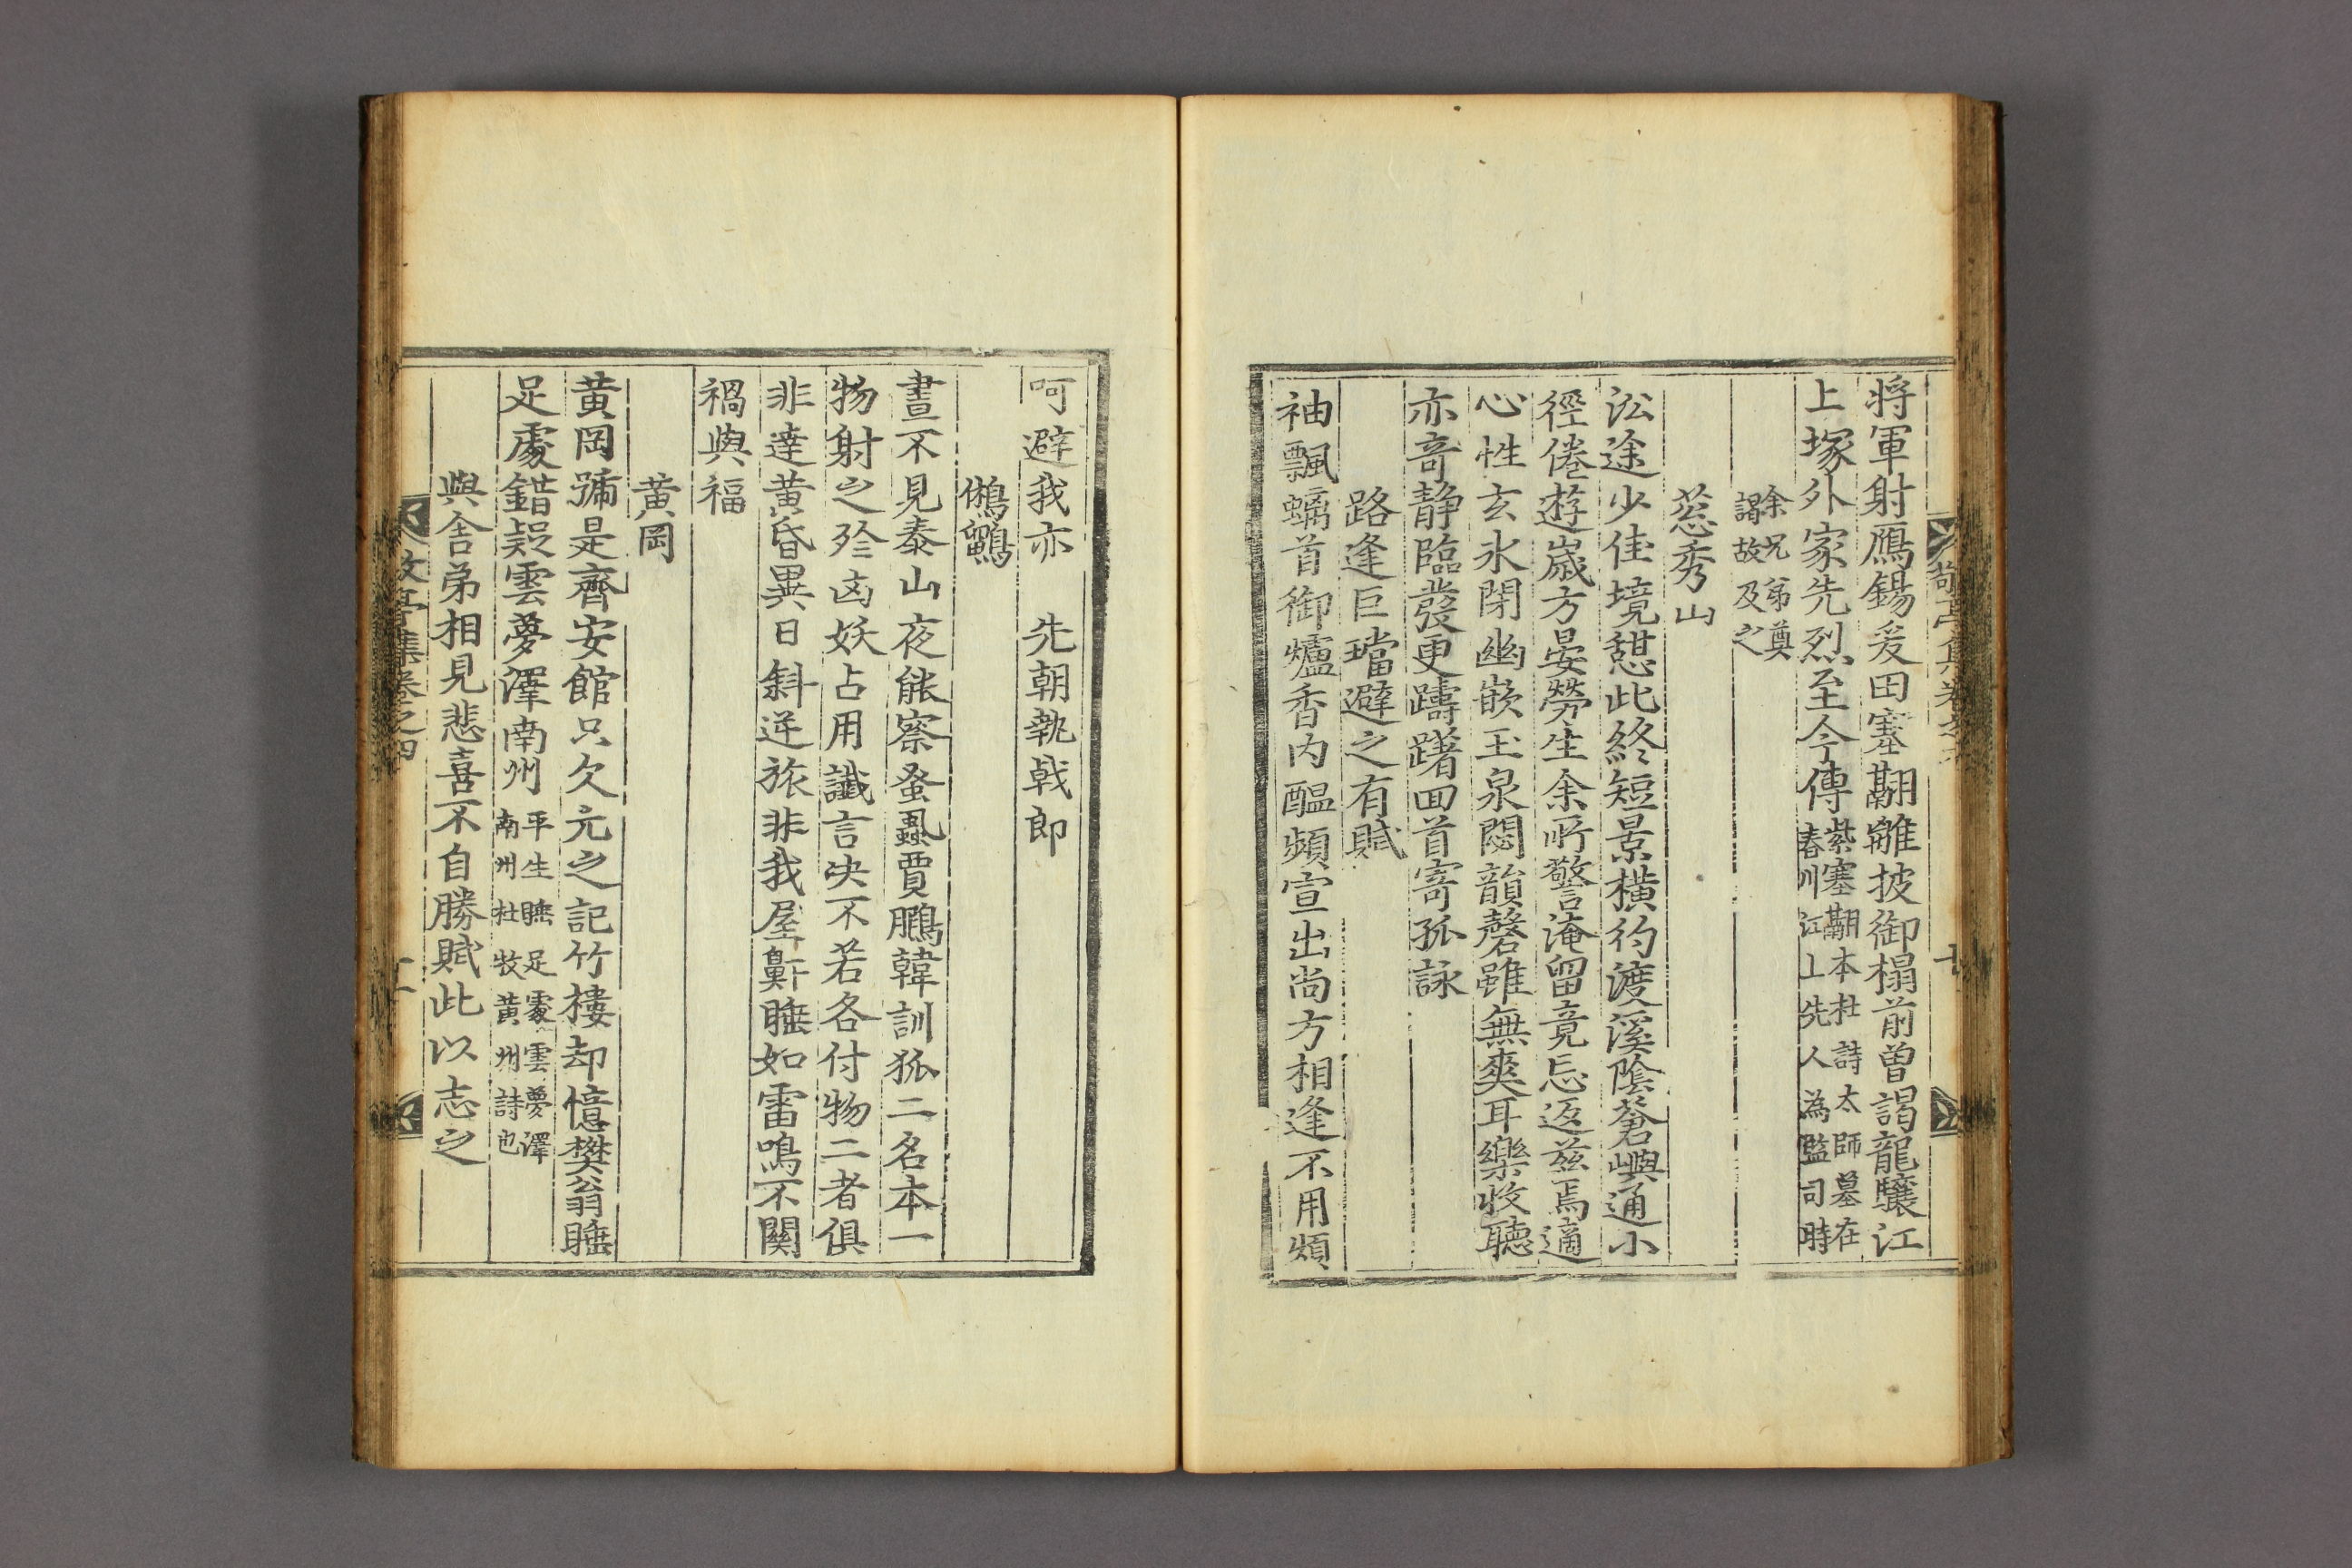 將軍射鴈錫爰田塞翢雛披御榻前曾謁龍驤江
上塚外家先烈至今傳紫塞翢本杜詩太師墓在
春川江上先人為監司時
余兄弟奠
謁故及之
葱秀山
㳂途少佳境憇此終短景横彴渡溪陰蒼嶼通小
徑倦遊嵗方晏勞生余所警淹留竟忘返茲焉適
心性玄氷閉幽嵌玉泉閟韻磬雖無爽耳樂收聽
亦奇静臨發更躊躇回首寄孤詠
路逢巨璫避之有賦
袖飄螭首御爐香内醖頻宣出尚方相逢不用煩
呵避我亦 先朝執戟郎
鵂鶹
晝不見泰山夜能察蚤虱賈鵬韓訓狐二名本一
物射之殄凶妖占用讖言决不若各付物二者俱
非達黄昏異日斜逆旅非我屋鼾睡如雷鳴不關
禍與福
黄岡
黄岡號是齊安館只欠元之記竹樓却憶樊翁睡
足處錯疑雲夢澤南州平生睡足處雲夢澤
南州杜牧黄州詩也
與舍弟相見悲喜不自勝賦此以志之
敬亭集卷之四